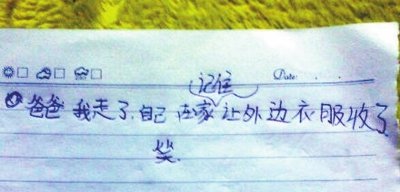 Date:
记住
爸爸 我走了.自己 在家 让外边衣服收了
笑